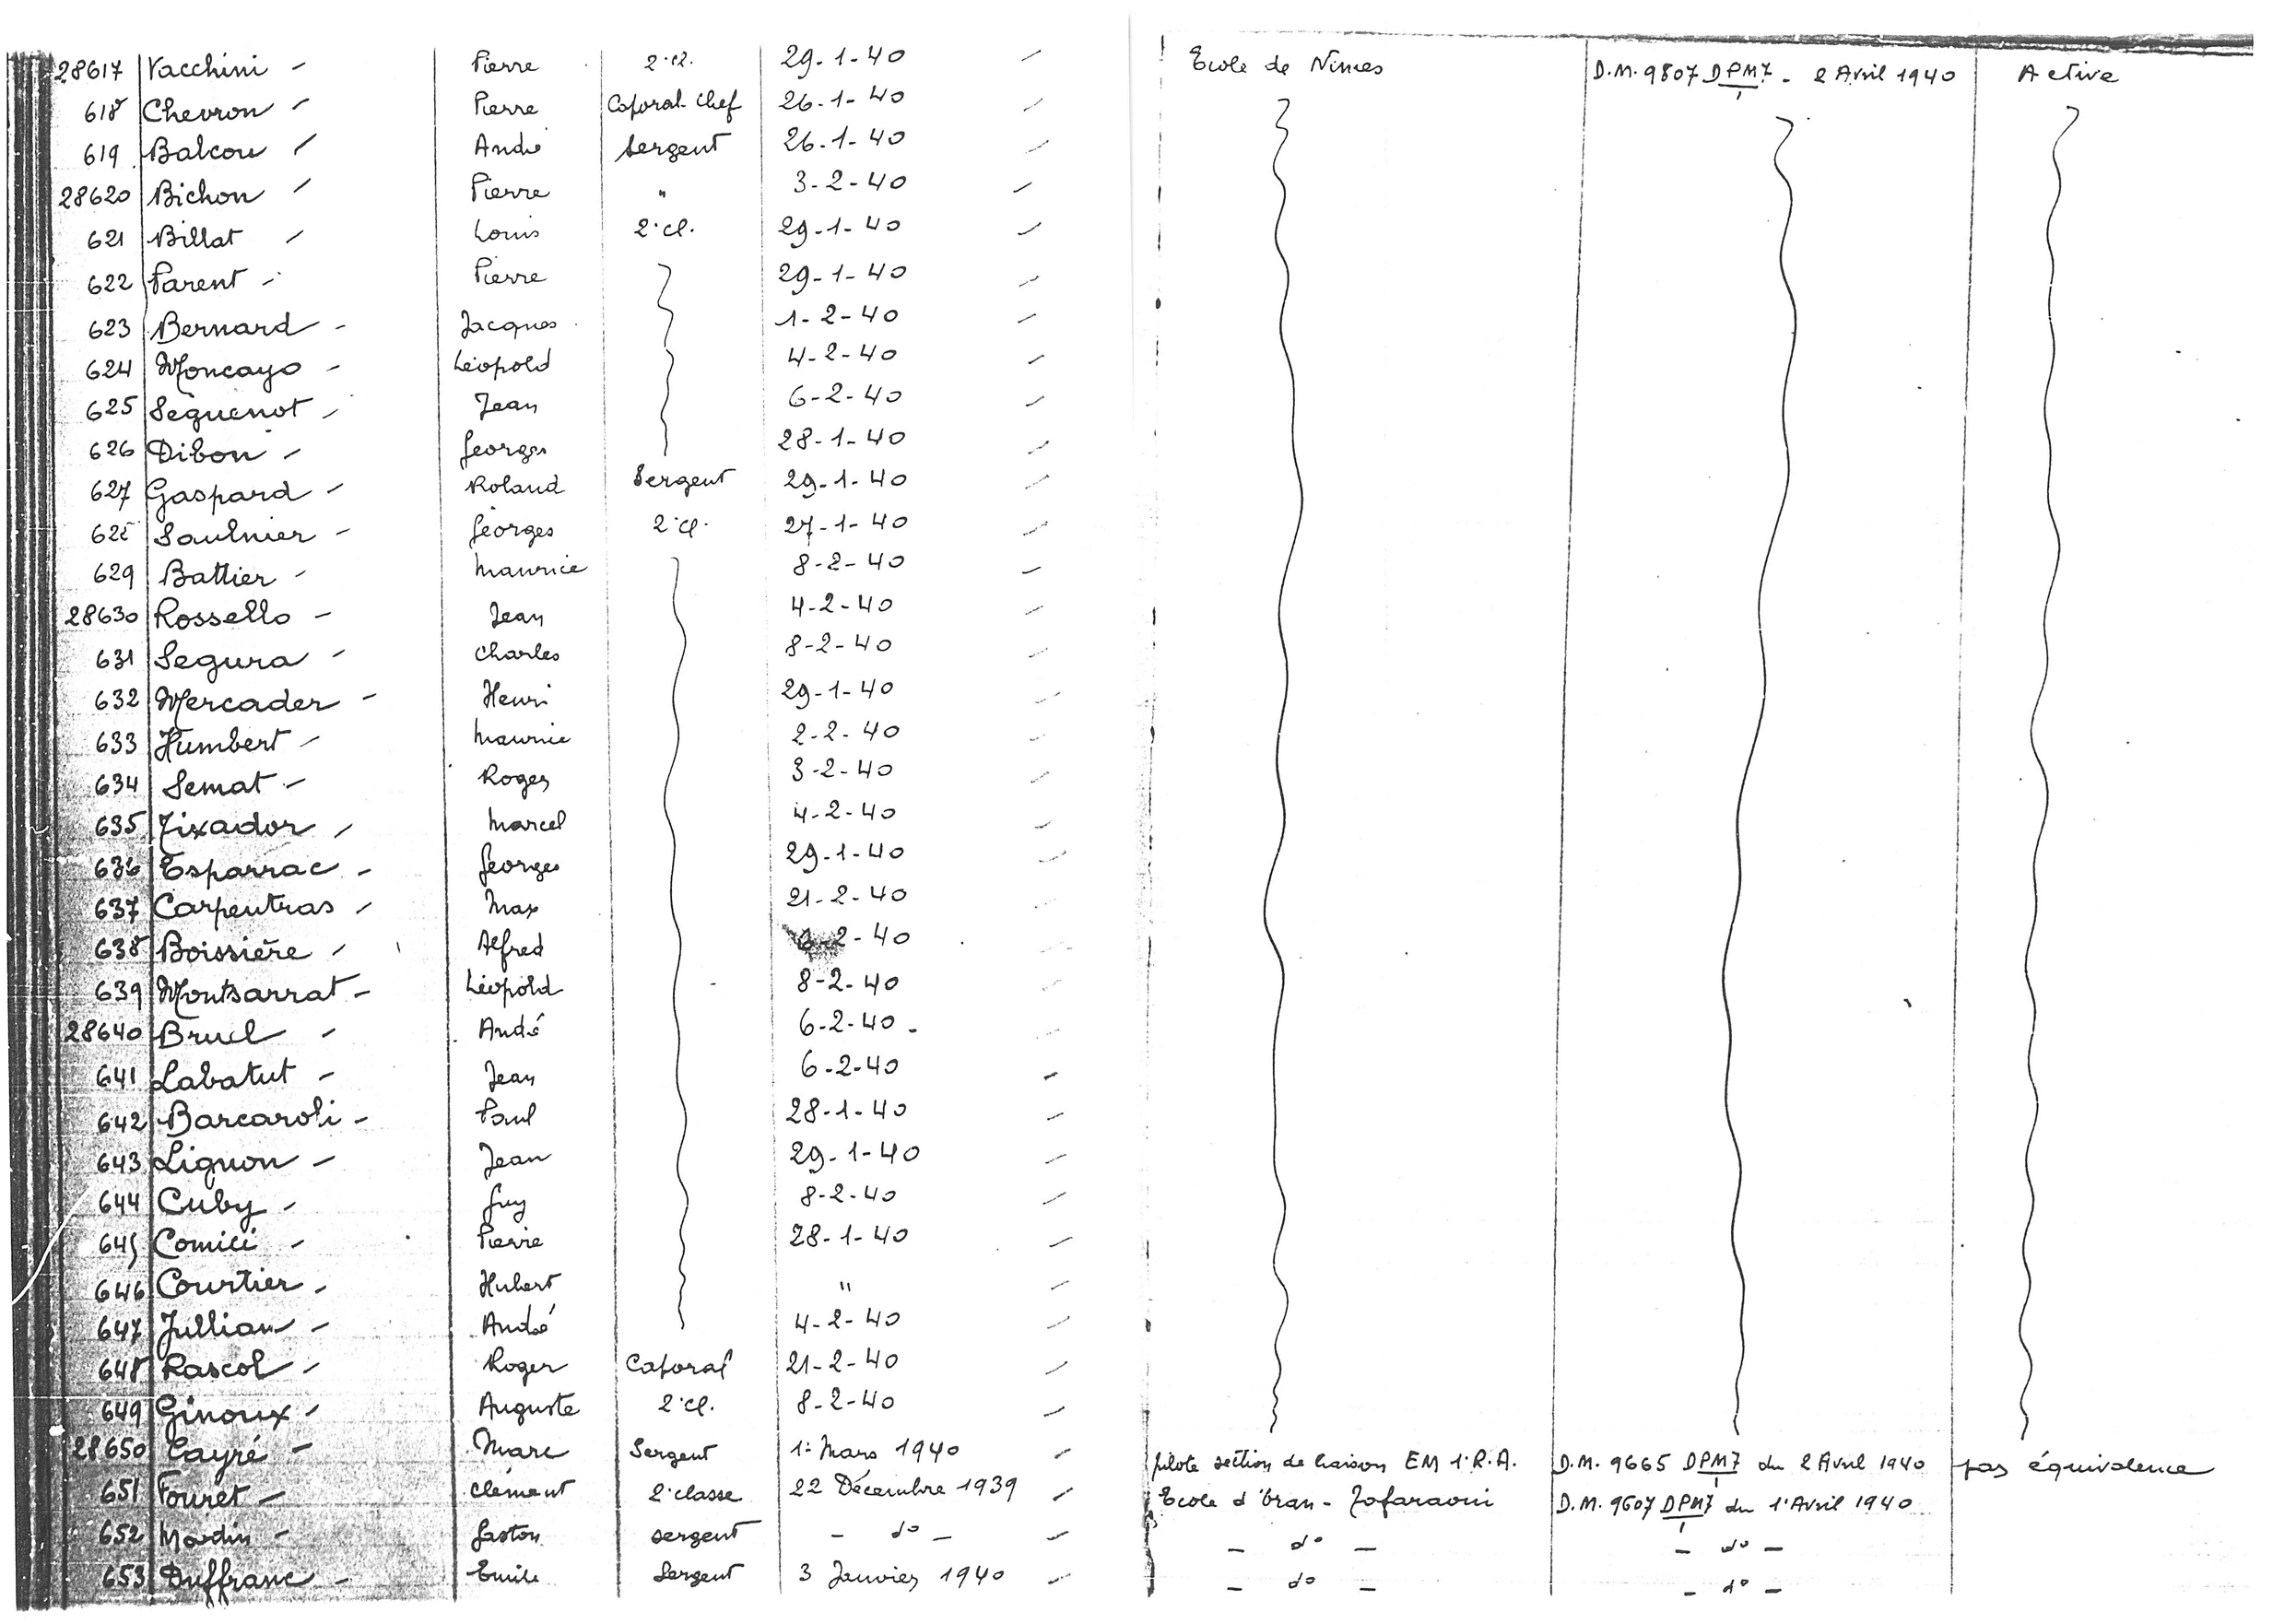 28617 Vacchini - Pierre 2e cl. 29-1-40 Ecole de Nimes D.M. 9807 DPM7 - 2 Avril 1940 Active
618 Chevron - Pierre Caporal-Chef 26-1-40
619 Balcou - André Sergent 26-1-40
28620 Bichon - Pierre " 3-2-40
621 Billat - Louis 2e cl. 29-1-40
622 Parent - Pierre 29-1-40
623 Bernard - Jacques 1-2-40
624 Moncayo - Léopold 4-2-40
625 Séguenot - Jean 6-2-40
626 Dibon - Georges 28-1-40
627 Gaspard - Roland Sergent 29-1-40
628 Saulnier - Georges 2e cl. 27-1-40
629 Battier - Maurice 8-2-40
28630 Rossello - Jean 4-2-40
631 Segura - Charles 8-2-40
632 Mercader - Henri 29-1-40
633 Humbert - Maurice 2-2-40
634 Semat - Roger 3-2-40
635 Tixador - Marcel 4-2-40
636 Esparrac - Georges 29-1-40
637 Carpentras - Max 21-2-40
638 Boissière - Alfred 6-2-40
639 Montsarrat - Léopold 8-2-40
28640 Bruel - André 6-2-40
641 Labatut - Jean 6-2-40
642 Barcaroli - Paul 28-1-40
643 Lignon - Jean 29-1-40
644 Cuby - Guy 8-2-40
645 Comiti - Pierre 28-1-40
646 Courtier - Hubert "
647 Jullian - André 4-2-40
648 Rascol - Roger Caporal 21-2-40
649 Ginoux - Auguste 2e cl. 8-2-40
28650 Cayré - Marc Sergent 1er Mars 1940 pilote section de liaison EM 1e R.A. D.M. 9665 DPM7 du 2 Avril 1940 pas équivalence
651 Fouret - Clément 2e classe 22 Décembre 1939 Ecole d'Oran-Tafaraoui D.M. 9607 DPM7 du 1er Avril 1940
652 Mardin - Gaston sergent - do - - do - - do -
653 Duffranc - Emile Sergent 3 Janvier 1940 - do - - do -